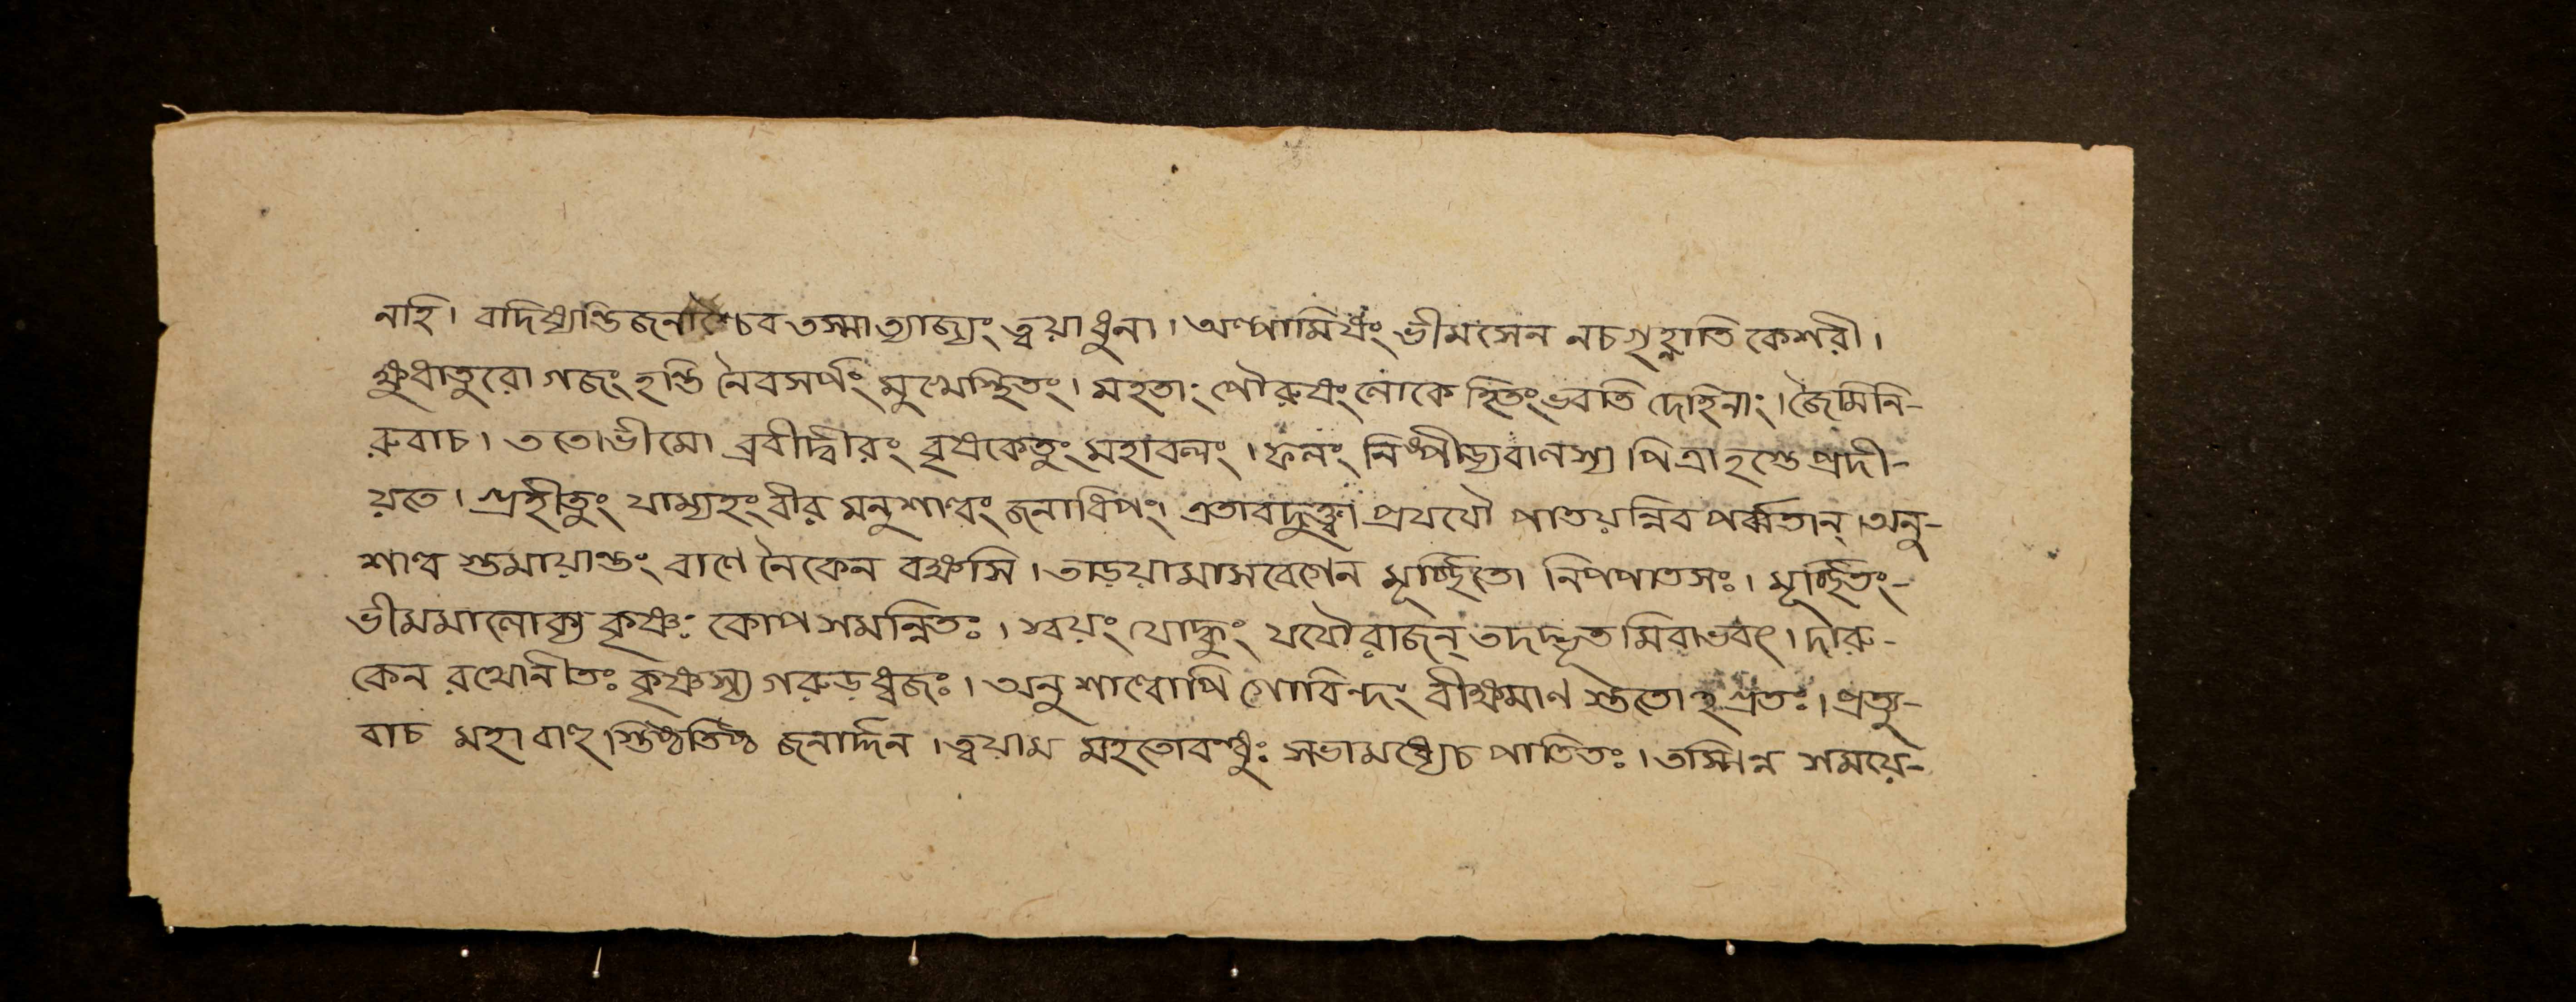 নাহি। বাদিষ্যন্তিজনাশ্চৈব তস্মাত্যাজ্যং ত্বয়াধুনা। অল্পামিষং ভীমসেন নচগৃহ্ণাতি কেশরী।
ক্ষুধাতুরো গজং হন্তি নৈবসর্পং মুখেস্থিতং। মহতাং পৌরুষং লোকে হিতং ভবতি দেহিনাং। জৈমিনি-
রুবাচ। ততোভীমো ব্রবীদ্বীরং বৃষকেতুং মহাবলং। ফলং নিষ্পীড্যবাণস্য পিত্রাহস্তে প্রদী-
য়তে। গ্রহীতুং যাম্যহং বীর মনুশাল্বং জনাধিপং। এতাবদুক্ত্বা প্রযযৌ পাতয়ন্নিব পর্ব্বতান্। অনু-
শাল্ব স্তমায়ান্তং বাণে নৈকেন বক্ষসি। তাড়য়ামাসবেগেন মূর্চ্ছিতো নিপপাতসঃ। মূর্চ্ছিতং-
ভীমমালোক্য কৃষ্ণঃ কোপ সমন্বিতঃ। স্বয়ং যোদ্ধুং যযৌরাজন্ তদদ্ভূত মিবাভবৎ। দারু-
কেন রথোনীতঃ কৃষ্ণস্য গরুড়ধ্বজঃ। অনুশাল্বোপি গোবিন্দং বীক্ষমাণ স্ততোহগ্রতঃ। প্রত্যু-
বাচ মহাবাহু স্তিষ্ঠতিষ্ঠ জনার্দ্দন। ত্বয়ামম মহতোবন্ধুঃ সভামধ্যেচ পাতিতঃ। তস্মিন্ন সময়ে-